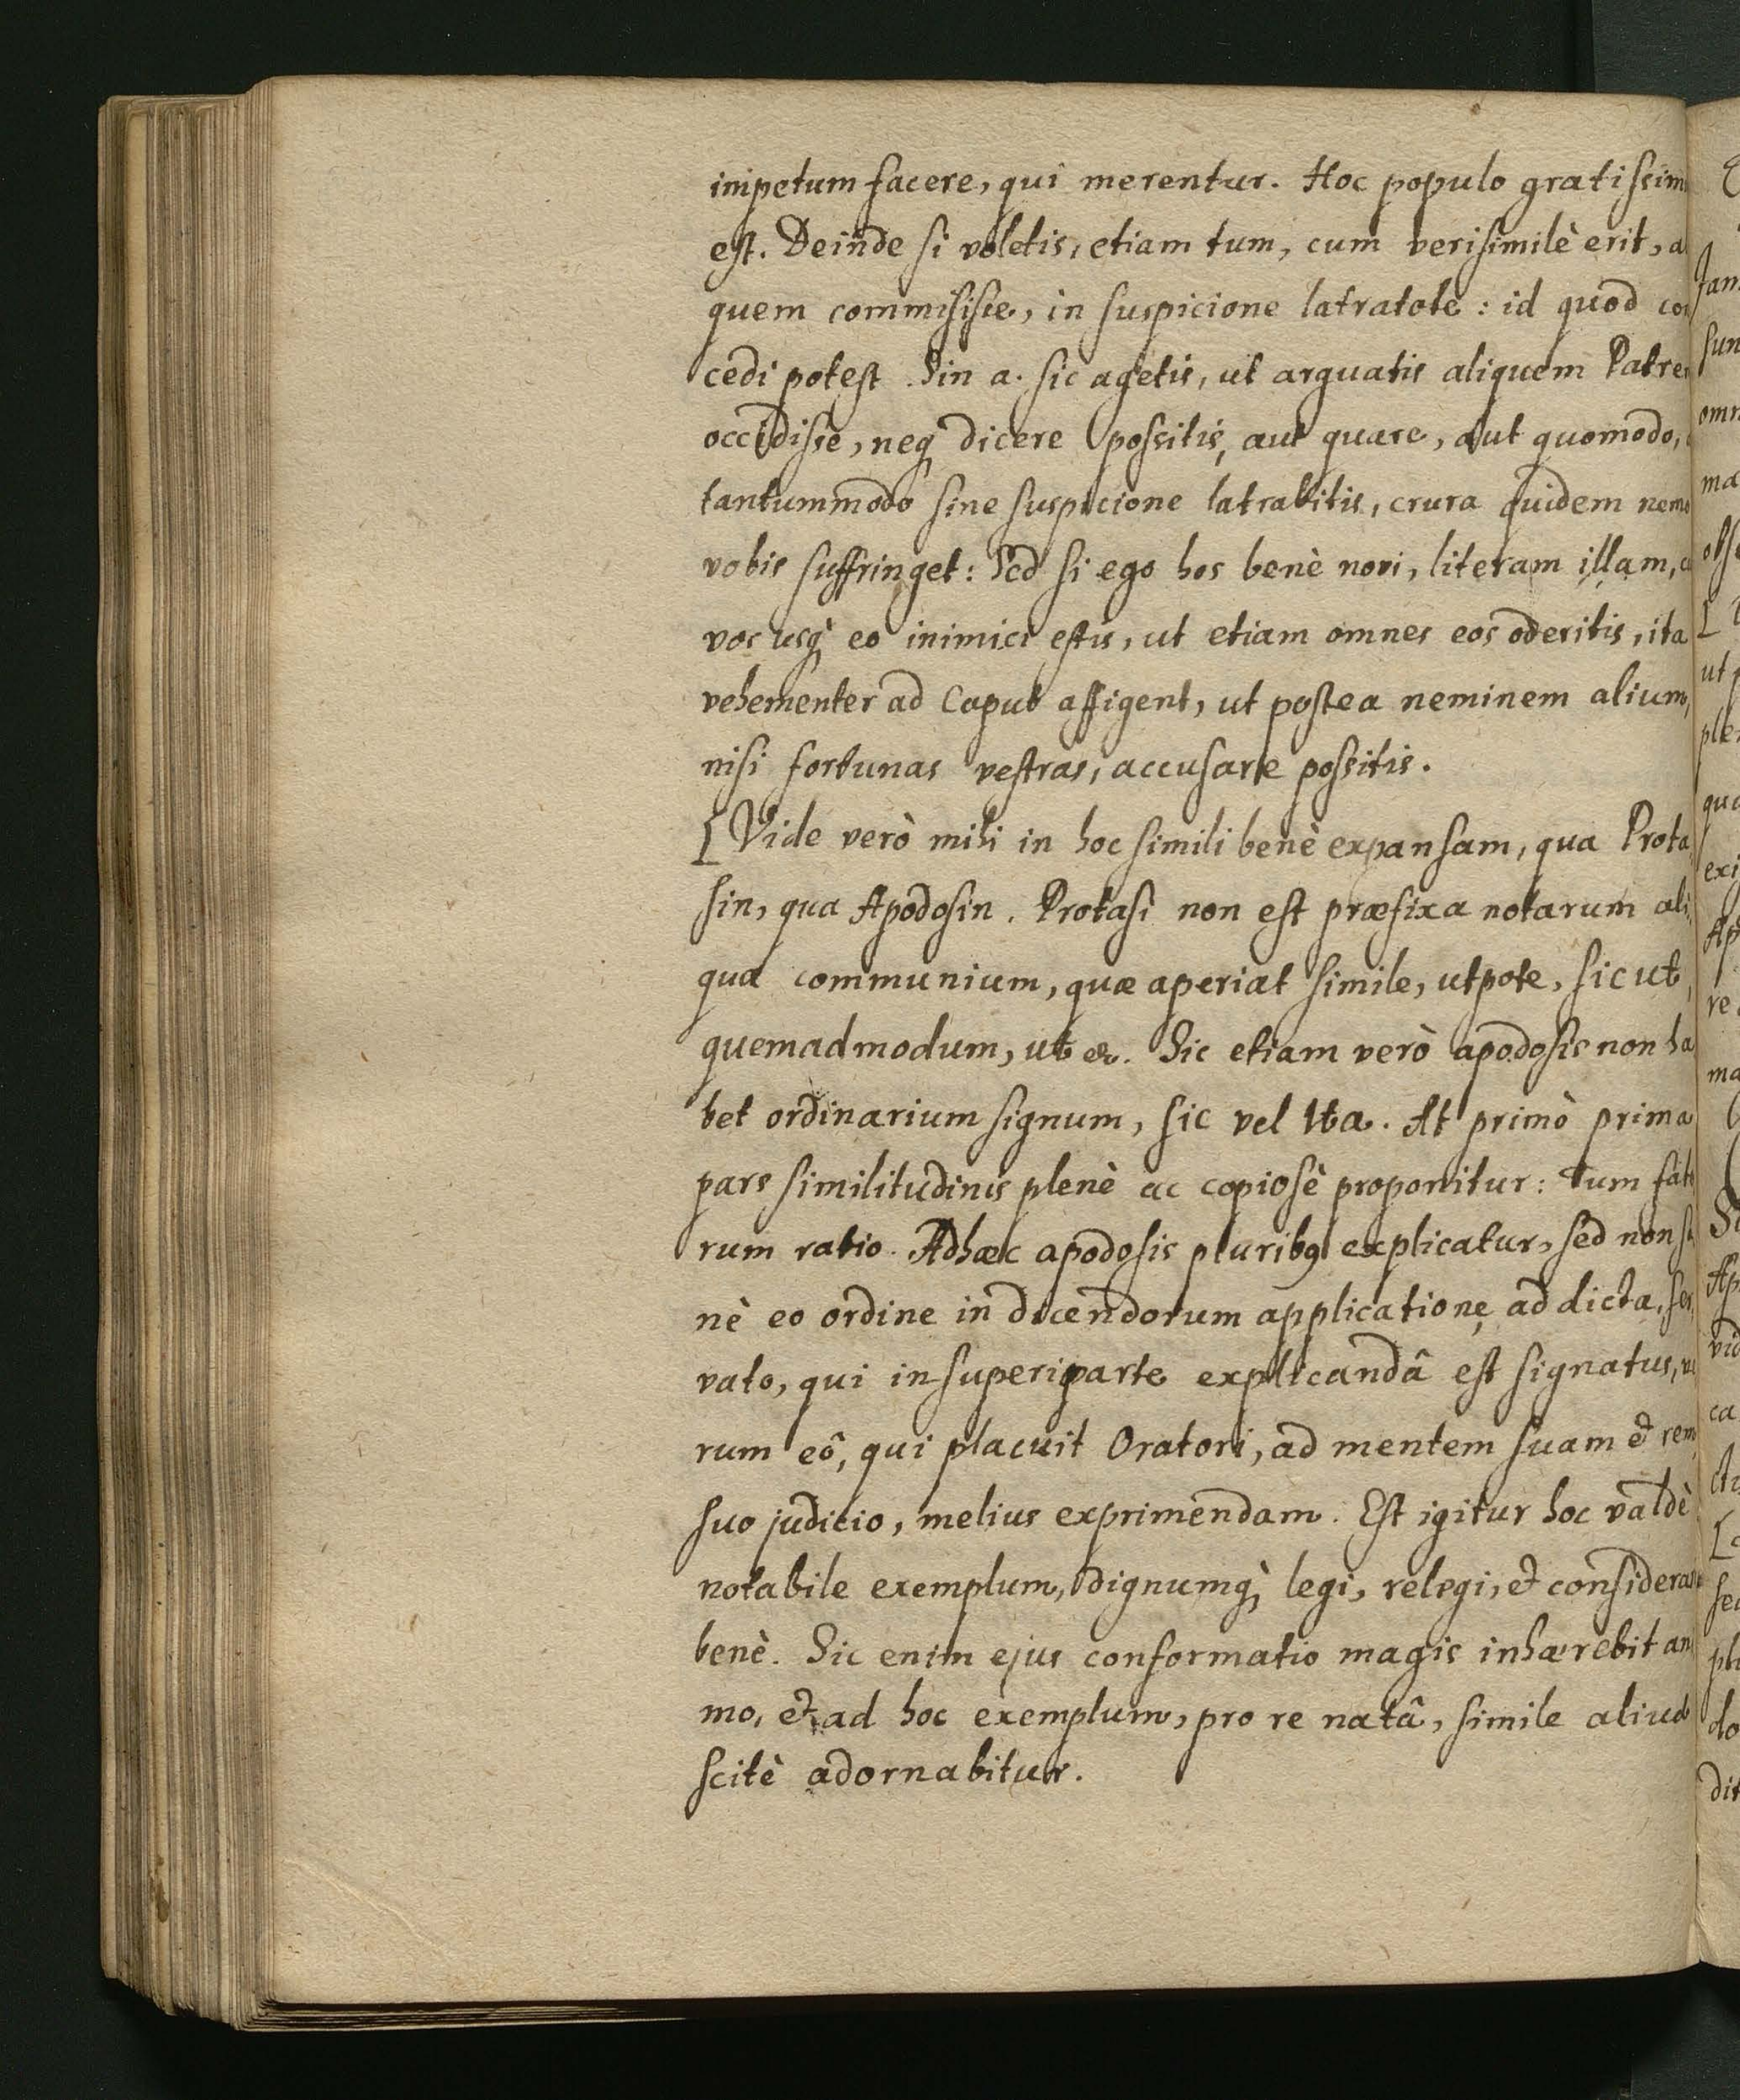 impetum facere, qui merentur. Hoc populo gratissim
est. Deinde si voletis, etiam tum, cum verisimilè erit, a
quem commisisse, in suspicione latratote: id quod con
cedi potest. Sin a. sic agetis, ut arguatis aliquem Patrem
occidisse, neq dicere possitis, aut quare, aut quomodo,
tantummodo sine suspicione latrabitis, crura quidem nemo
vobis suffringet: Sed si ego hos benè novi, literam illam, c
vos usq eo inimici estis, ut etiam omnes eos oderitis, ita
vehementer ad Caput affigent, ut postea neminem alium,
nisi fortunas vestras, accusare possitis.
[Vide verò mihi in hoc simili benè expansam, qua Prota-
sin, qua Apodosin. Protasi non est præfixa notarum ali-
qua communium, quæ aperiat simile, utpote, sicut,
quemadmodum, ut &. Sic etiam verò apodosis non ha
bet ordinarium signum, sic vel Ita. At primò prima
pars similitudinis plenè ac copiosè proponitur: Tum
rum ratio. Adhæc apodosis pluribq explicatur, sed non sa
nè eo ordine in dicendorum applicatione ad dicta, ser
vato, qui in superi parte explicandâ est signatus, ve
rum eô, qui placuit Oratori, ad mentem suam & rem,
suo judicio, melius exprimendam. Est igitur hoc valdè
notabile exemplum, dignumq, legi, relegi, & considerari
benè. Sic enim ejus conformatio magis inhærebit ani
mo, & ad hoc exemplum, pro re natâ, simile aliud
scitè adornabitur.